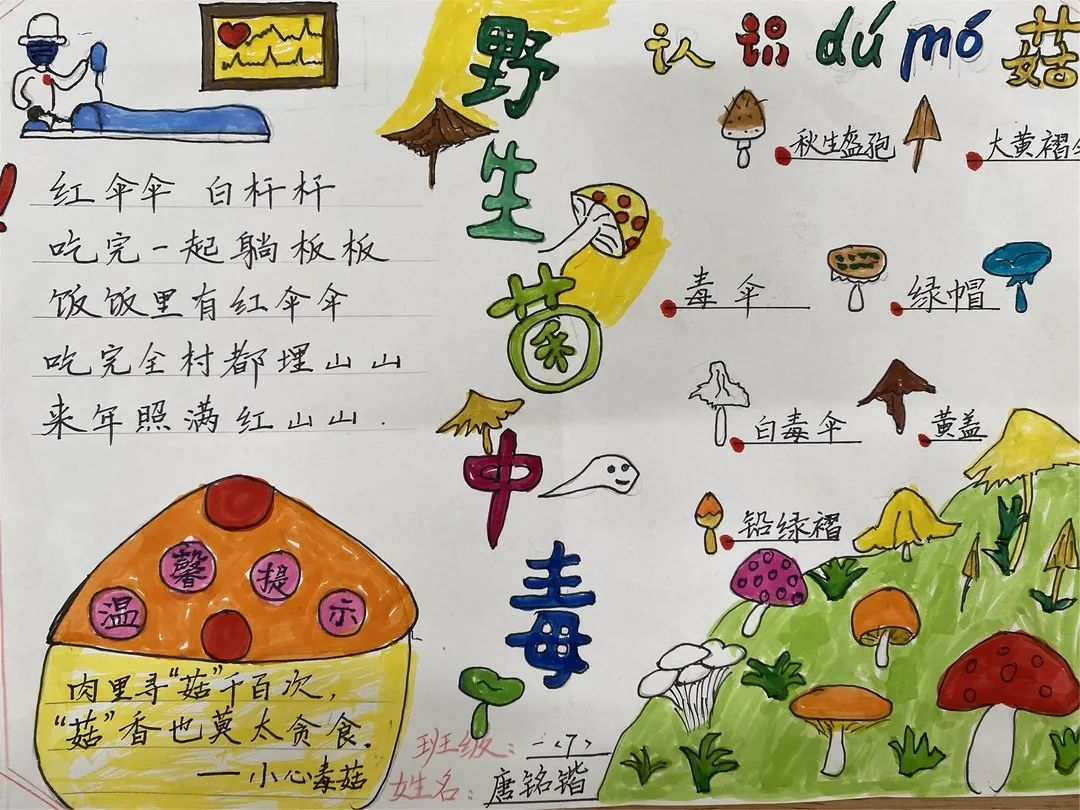 野生菌中毒
认识dú mó菇
红伞伞 白杆杆
吃完一起躺板板
饭饭里有红伞伞
吃完全村都埋山山
来年照满红山山.
秋生盔孢
大黄褶
毒伞
绿帽
白毒伞
黄盖
铅绿褶
温馨提示
肉里寻“菇”千百次,
“菇”香也莫太贪食.
——小心毒菇
班级:一<7>
姓名:唐铭锴